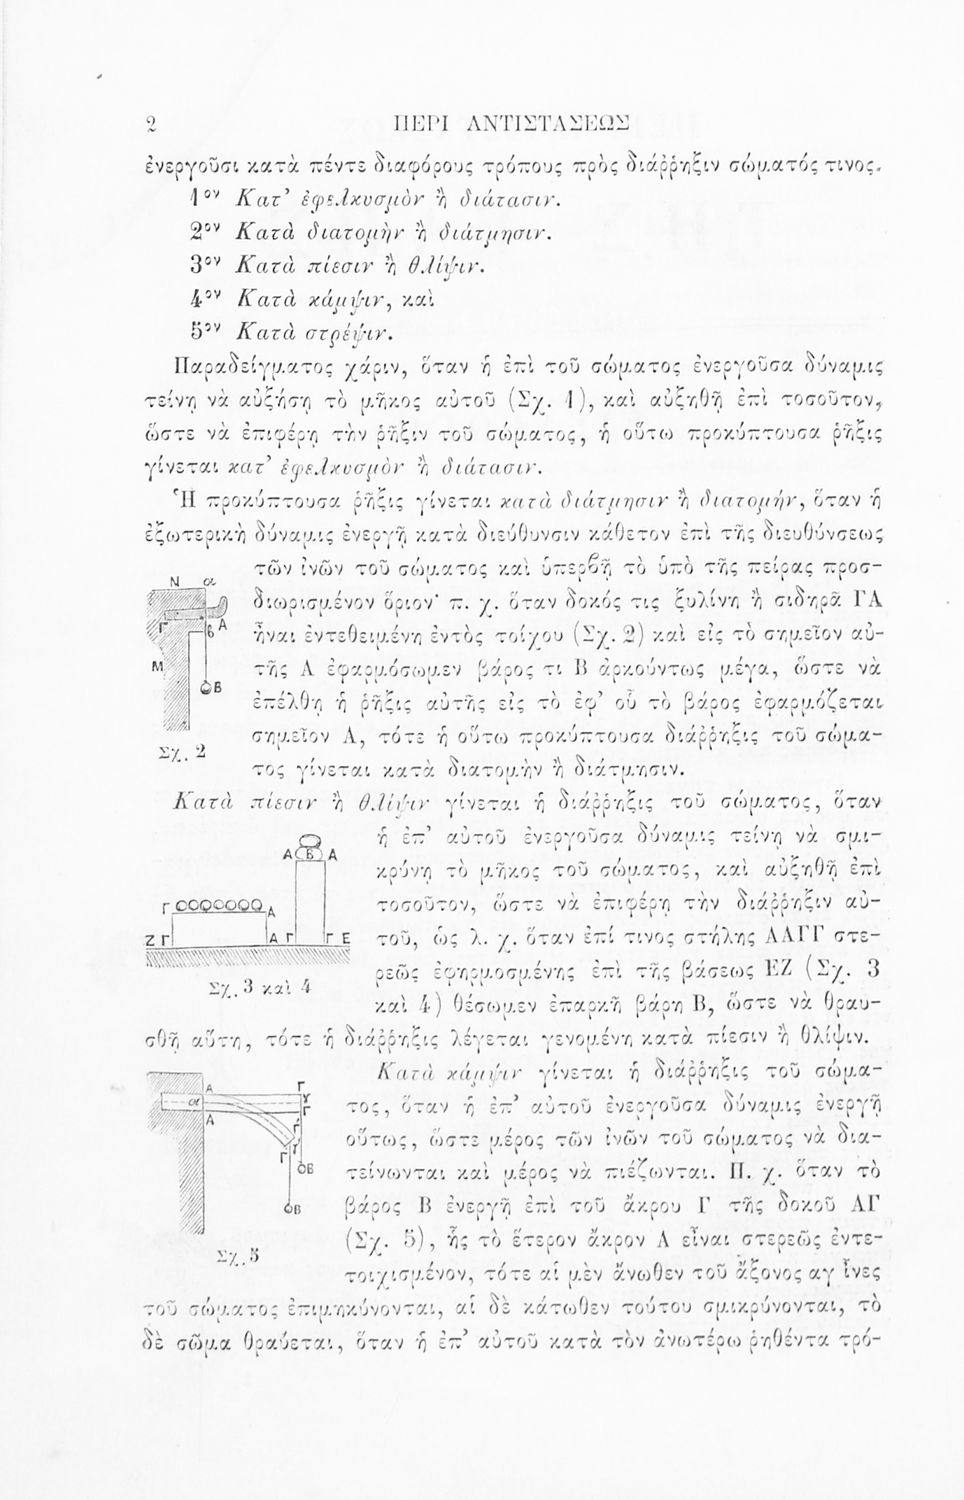 2 ΠΕΡΙ ΑΝΤΙΣΤΑΣΕΩΣ
ἐνεργοῦσι κατὰ πέντε διαφόρους τρόπους πρὸς διάῤῥηξιν σώματός τινος.
1ον Κατ’ ἐφελκυσμὸν ἢ διάτασιν.
2ον Κατὰ διατομὴν ἢ διάτμησιν.
3ον Κατὰ πίεσιν ἢ θλίψιν.
4ον Κατὰ κάμψιν, καὶ
5ον Κατὰ στρέψιν.
Παραδείγματος χάριν, ὅταν ἡ ἐπὶ τοῦ σώματος ἐνεργοῦσα δύναμις
τείνῃ νὰ αὐξήσῃ τὸ μῆκος αὐτοῦ (Σχ. 1), καὶ αὐξηθῇ ἐπὶ τοσοῦτον,
ὥστε νὰ ἐπιφέρῃ τὴν ῥῆξιν τοῦ σώματος, ἡ οὕτω προκύπτουσα ῥῆξις
γίνεται κατ’ ἐφελκυσμὸν ἢ διάτασιν.
Ἡ προκύπτουσα ῥῆξις γίνεται κατὰ διάτμησιν ἢ διατομήν, ὅταν ἡ
ἐξωτερικὴ δύναμις ἐνεργῇ κατὰ διεύθυνσιν κάθετον ἐπὶ τῆς διευθύνσεως
τῶν ἰνῶν τοῦ σώματος καὶ ὑπερβῇ τὸ ὑπὸ τῆς πείρας προσ-
διωρισμένον ὅριον· π. χ. ὅταν δοκός τις ξυλίνη ἢ σιδηρᾶ ΓΑ
ἦναι ἐντεθειμένη ἐντὸς τοίχου (Σχ. 2) καὶ εἰς τὸ σημεῖον αὐ-
τῆς Α ἐφαρμόσωμεν βάρος τι Β ἀρκούντως μέγα, ὥστε νὰ
ἐπέλθῃ ἡ ῥῆξις αὐτῆς εἰς τὸ ἐφ’ οὗ τὸ βάρος ἐφαρμόζεται
σημεῖον Α, τότε ἡ οὕτω προκύπτουσα διάῤῥηξις τοῦ σώμα-
τος γίνεται κατὰ διατομὴν ἢ διάτμησιν.
N α
Γ β A
M
B
Σχ. 2
Κατὰ πίεσιν ἢ θλίψιν γίνεται ἡ διάῤῥηξις τοῦ σώματος, ὅταν
ἡ ἐπ’ αὐτοῦ ἐνεργοῦσα δύναμις τείνῃ νὰ σμι-
κρύνῃ τὸ μῆκος τοῦ σώματος, καὶ αὐξηθῇ ἐπὶ
τοσοῦτον, ὥστε νὰ ἐπιφέρῃ τὴν διάῤῥηξιν αὐ-
τοῦ, ὡς λ. χ. ὅταν ἐπί τινος στήλης ΑΑΓΓ στε-
ρεῶς ἐφηρμοσμένης ἐπὶ τῆς βάσεως ΕΖ (Σχ. 3
καὶ 4) θέσωμεν ἐπαρκῆ βάρη Β, ὥστε νὰ θραυ-
σθῇ αὕτη, τότε ἡ διάῤῥηξις λέγεται γενομένη κατὰ πίεσιν ἢ θλίψιν.
A B A
Γ A
Z Γ A Γ Γ E
Σχ. 3 καὶ 4
Κατὰ κάμψιν γίνεται ἡ διάῤῥηξις τοῦ σώμα-
τος, ὅταν ἡ ἐπ’ αὐτοῦ ἐνεργοῦσα δύναμις ἐνεργῇ
οὕτως, ὥστε μέρος τῶν ἰνῶν τοῦ σώματος νὰ δια-
τείνωνται καὶ μέρος νὰ πιέζωνται. Π. χ. ὅταν τὸ
βάρος Β ἐνεργῇ ἐπὶ τοῦ ἄκρου Γ τῆς δοκοῦ ΑΓ
(Σχ. 5), ἧς τὸ ἕτερον ἄκρον Α εἶναι στερεῶς ἐντε-
τοιχισμένον, τότε αἱ μὲν ἄνωθεν τοῦ ἄξονος αγ ἶνες
τοῦ σώματος ἐπιμηκύνονται, αἱ δὲ κάτωθεν τούτου σμικρύνονται, τὸ
δὲ σῶμα θραύεται, ὅταν ἡ ἐπ’ αὐτοῦ κατὰ τὸν ἀνωτέρω ῥηθέντα τρό-
A Γ
α γ
A Γ
Γ
Γ γ
B
B
Σχ. 5